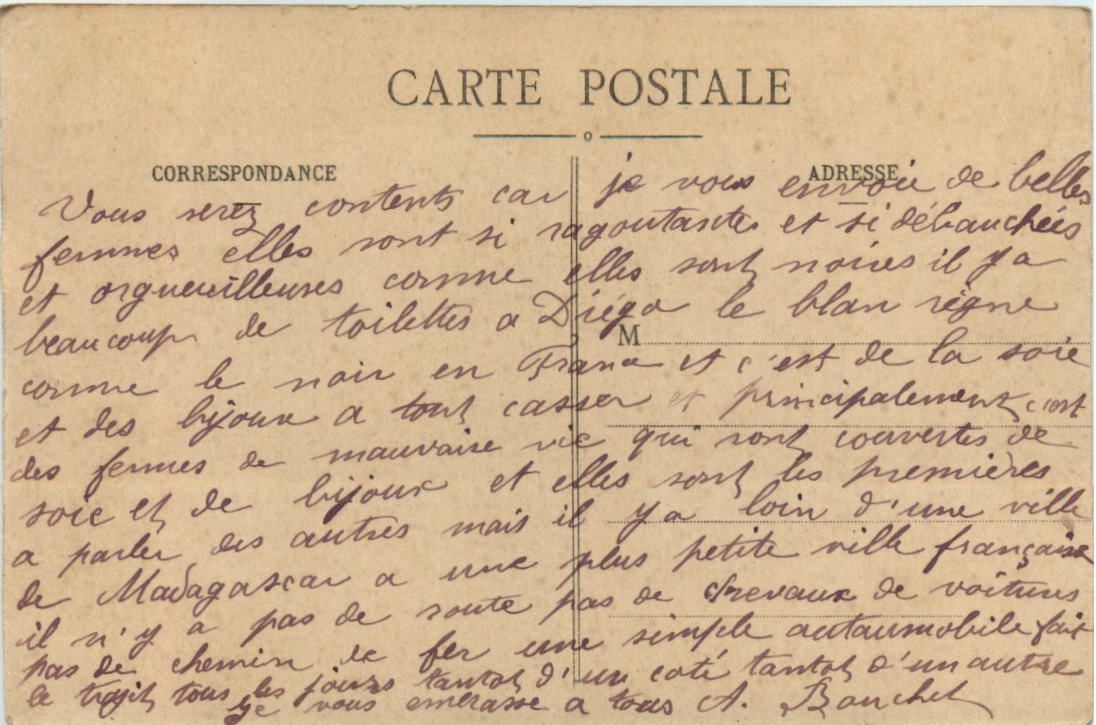 CARTE POSTALE
CORRESPONDANCE
ADRESSE
Vous serez contents car je vous envoie de belles
femmes elles sont si ragoutantes et si débauchées
et orgueuilleuses comme elles sont noires il y a
beaucoup de toilettes a Diégo le blan règne
M
comme le noir en France et c'est de la soie
et des bijoux a tout casser et principalement c'est
des femmes de mauvaise vie qui sont couvertes de
soie et de bijoux et elles sont les premières
a parler des autres mais il y a loin d'une ville
de Madagascar a une plus petite ville française
il n'y a pas de route pas de chevaux de voitures
pas de chemin de fer une simple autaumobile fait
le trajit tous les jours tantot d'un coté tantot d'un autre
Je vous embrasse a tous A. Bouchet